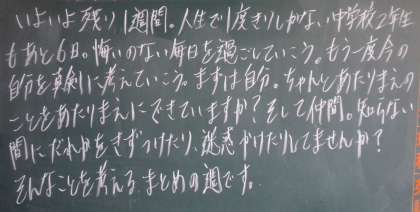 いよいよ残り1週間。人生で1度きりしかない中学校2年生
もあと6日。悔いのない毎日を過ごしていこう。もう一度今の
自分を真剣に考えていこう。まずは自分。ちゃんとあたりまえの
ことをあたりまえにできていますか？そして仲間。知らない
間にだれかをきずつけたり、迷惑かけたりしてませんか？
そんなことを考える、まとめの週です。